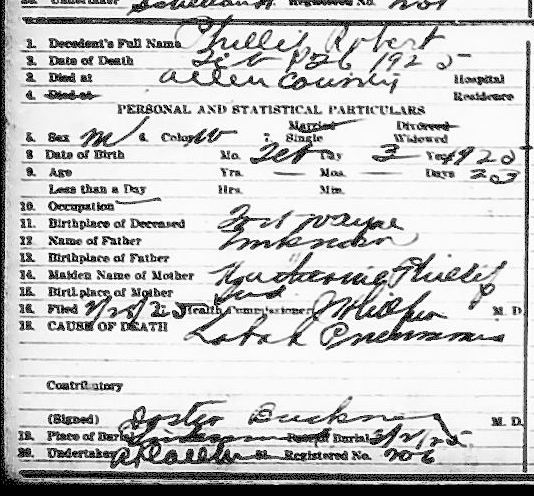 1. Decedent's Full Name Phillis, Robert
2. Date of Death Feb 26 1925
3. Died at Allen County Hospital
4. Died at Residence
PERSONAL AND STATISTICAL PARTICULARS
Married Divorced
5. Sex M 6. Color W 7. Single Widowed
8 Date of Birth Mo. Feb Day 3 Year 1925
9. Age Yrs. — Mos. — Days 23
Less than a Day Hrs. Min.
10. Occupation
11. Birthplace of Deceased Fort Wayne
12 Name of Father Unknown
13. Birthplace of Father "
14. Maiden Name of Mother Katherine Phillis
15. Birthplace of Mother Ind
16. Filed 2/28/25 Health Commissioner M. D.
18. CAUSE OF DEATH Lobar Pneumonia
Contributory
(Signed) Buckner M. D.
19. Place of Burial Date of Burial
20. Undertaker Registered No. 206